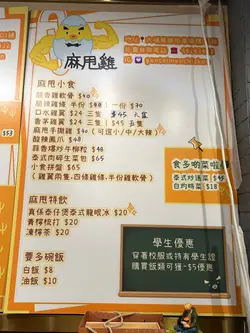 麻甩雞
麻甩小食
脆香雞軟骨 $40
半份 $40 一份 $70
口水雞翼 $24 三隻
香茅雞翼 $24 三隻 $45 五隻
麻甩手撕雞 $40 (可選小/中/大辣)
酸辣鳳爪 $48
蒜香爆炒牛柳粒 $48
泰式肉碎生菜包 $65
小食拼盤 $65
(雞翼兩隻,四條雞條,半份雞軟骨)
食多啲菜啦
泰式炒通菜
白灼時菜 $18
麻甩特飲
真係泰仔煲泰式龍眼冰 $20
青檸梳打 $20
凍檸茶 $20
要多碗飯
白飯 $8
油飯 $10
學生優惠
穿著校服或持有學生證
購買飯類可獲-$5優惠
$53